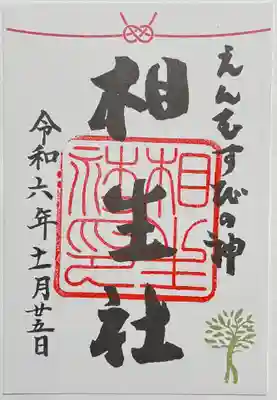 えんむすびの神
相生社
令和六年十一月廿五日
相生社印